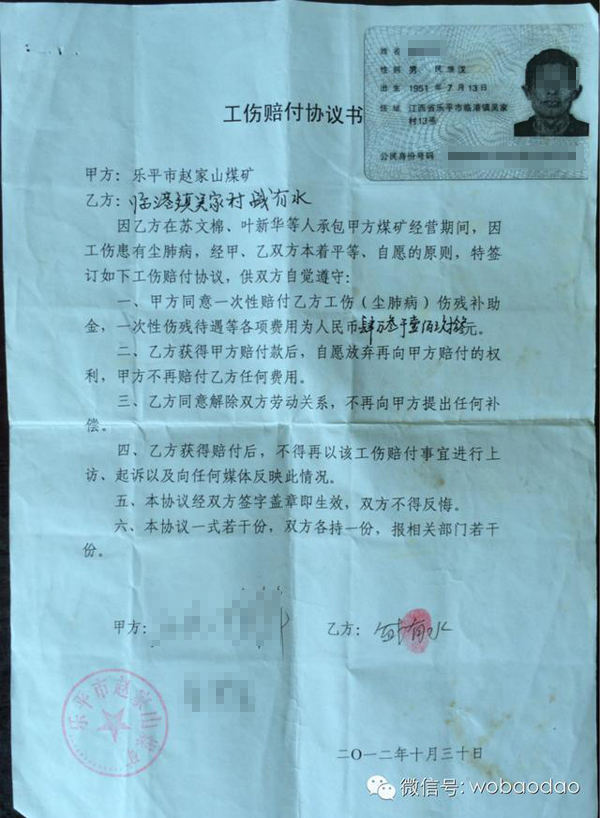 姓名
性别 男 民族汉
出生 1951 年 7 月 13 日
住址 江西省乐平市临港镇吴家
村13号
公民身份号码
工伤赔付协议书
甲方：乐平市赵家山煤矿
乙方：临港镇吴家村 有水
因乙方在苏文棉、叶新华等人承包甲方煤矿经营期间，因
工伤患有尘肺病，经甲、乙双方本着平等、自愿的原则，特签
订如下工伤赔付协议，供双方自觉遵守：
一、甲方同意一次性赔付乙方工伤（尘肺病）伤残补助
金，一次性伤残待遇等各项费用为人民币肆万叁千壹佰玖拾元。
二、乙方获得甲方赔付款后，自愿放弃再向甲方赔付的权
利，甲方不再赔付乙方任何费用。
三、乙方同意解除双方劳动关系，不再向甲方提出任何补
偿。
四、乙方获得赔付后，不得再以该工伤赔付事宜进行上
访、起诉以及向任何媒体反映此情况。
五、本协议经双方签字盖章即生效，双方不得反悔。
六、本协议一式若干份，双方各持一份，报相关部门若干
份。
甲方： 乙方： 有水
乐平市赵家山煤矿
二〇一二年十月三十日
微信号: wobaodao